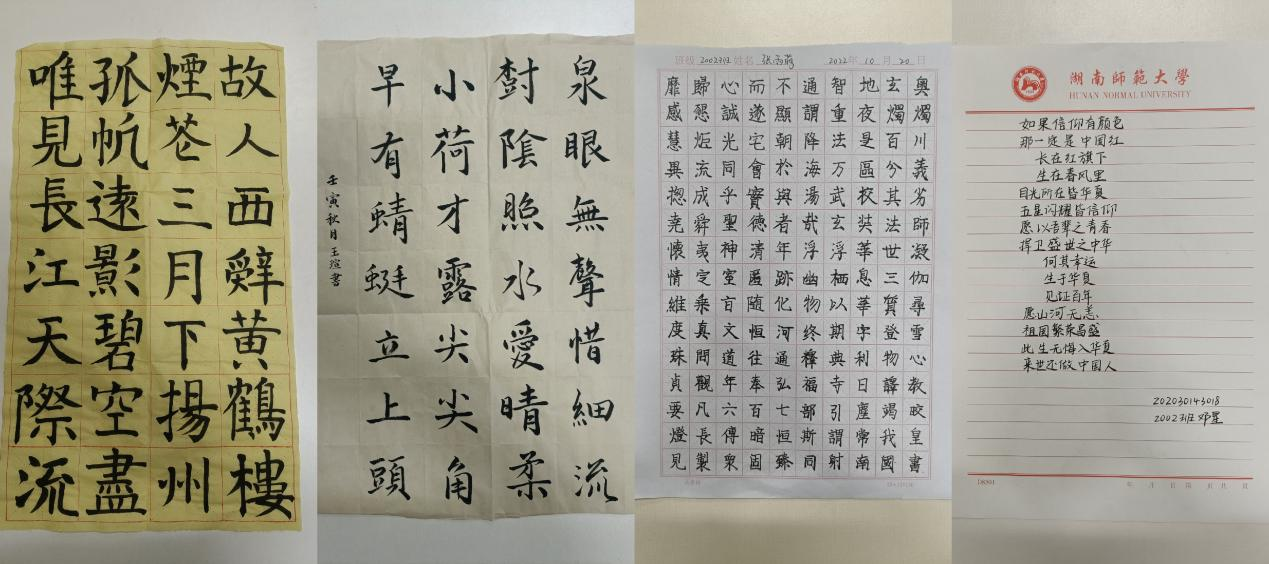 故人西辭黃鶴樓
煙花三月下揚州
孤帆遠影碧空盡
唯見長江天際流
泉眼無聲惜細流
樹陰照水愛晴柔
小荷才露尖尖角
早有蜻蜓立上頭
壬寅秋月王瑄書
班级 2002班 姓名 2022年10月20日
奥燭川義劣師凝伽尋雪心教皎皇書
玄燭百兮其法世三賀登物譯竭我國
地夜是區校奘世息華字利日塵常南
智重法万武玄浮栖以期典寺引謂射
通謂降海湯哉浮幽物終釋福部斯同
不顯朝於與者年跡化河通弘七恒臻
而遂宅會寶德清匿随恒往奉百暗固
心誠光同乎聖神室言文道年六傳衆
歸懇炬流成舜夷定乘真問觀凡長製
靡感慧異惚尭懷情維度珠貞要燈見
湖南師範大學
HUNAN NORMAL UNIVERSITY
如果信仰有颜色
那一定是中国红
长在红旗下
生在春风里
目光所在皆华夏
五星闪耀皆信仰
愿以吾辈之青春
捍卫盛世之中华
何其幸运
生于华夏
见证百年
愿山河无恙
祖国繁荣昌盛
此生无悔入华夏
来世还做中国人
202030143018
2002班 邓星
D8301 年 月 日 第 页 共 页